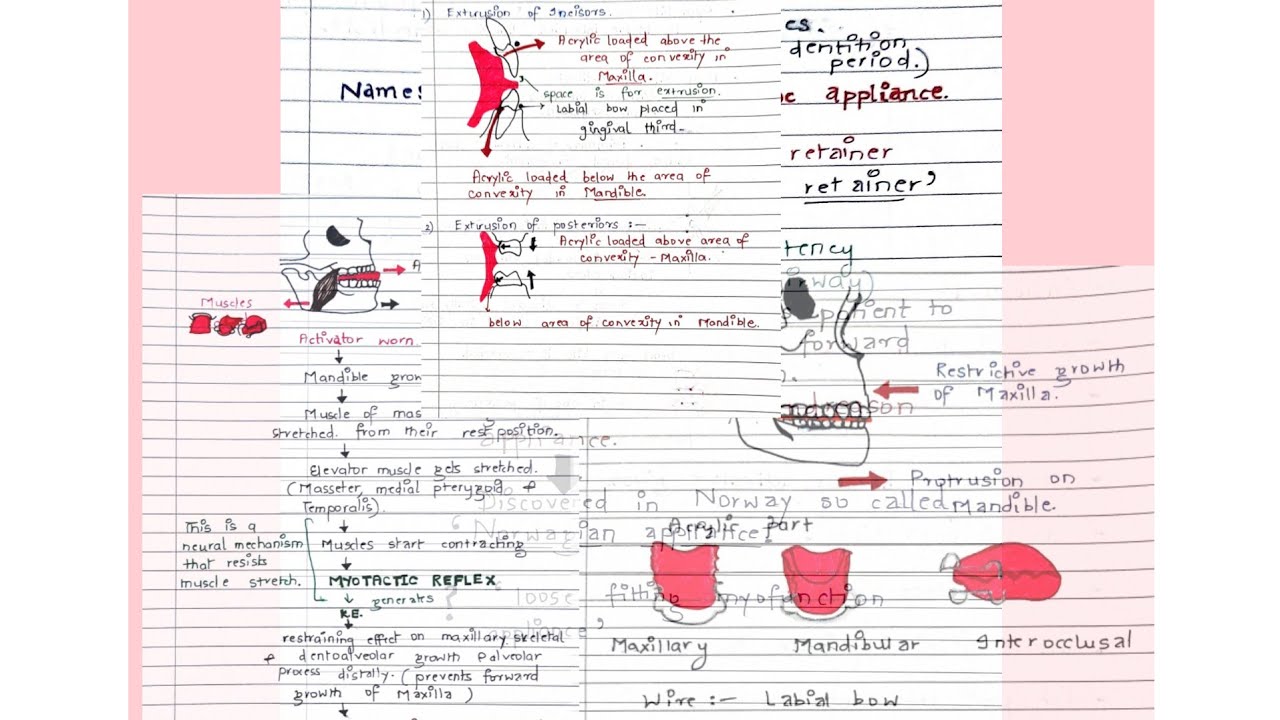 1) Extrusion of Incisors.
Acrylic loaded above the
area of convexity in
Maxilla.
space is for extrusion.
Labial bow placed in
gingival third
Acrylic loaded below the area of
convexity in Mandible.
2) Extrusion of posteriors :-
Acrylic loaded above area of
convexity - Maxilla.
below area of convexity in Mandible.
Name:
dentition
period.)
appliance.
retainer
retainer'
patient to
forward
Restrictive growth
of Maxilla.
Protrusion on
Mandible.
appliance.
Discovered in Norway so called
'Norwagian appliance'.
loose fitting myofunction
appliance'
Acrylic Part
Maxillary
Mandibular
Interocclusal
Wire :- Labial bow
Muscles
Activator worn
Mandible grow
Muscle of mas
stretched from their rest position.
Elevator muscle gets stretched.
(Masseter, medial pterygoid &
Temporalis).
Muscles start contracting
This is a
neural mechanism
that resists
muscle stretch.
MYOTACTIC REFLEX
generates
K.E.
restraining effect on maxillary skeletal
& dentoalveolar growth & alveolar
process distally. (prevents forward
growth of Maxilla)